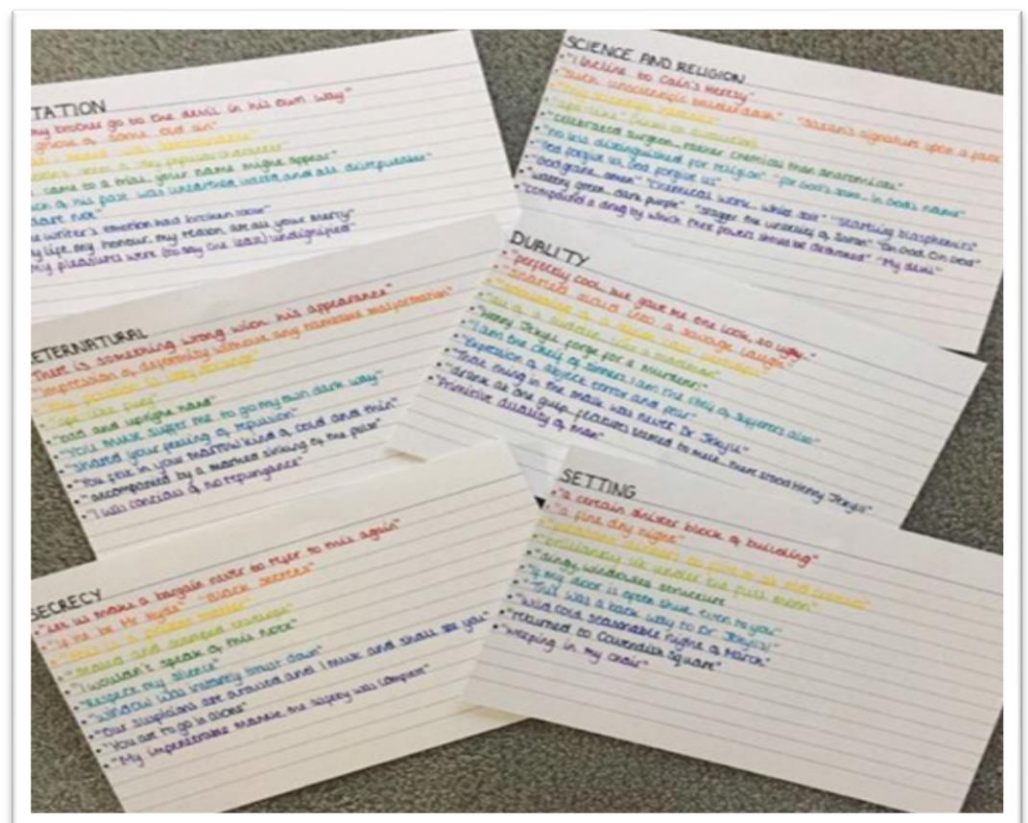 TATION
my brother go to the devil in his own way"
ghost of some old sin"
came to a trial, your name might appear"
of his past was unearthed and all disreputable"
dare not"
writer's emotion had broken loose"
my life, my honour, my reason, are all your mercy"
my pleasures were (to say the least) undignified"
SCIENCE AND RELIGION
• "I incline to Cain's heresy"
• "such unscientific balderdash" "Satan's signature upon a face"
• "celebrated surgeon, rather chemical than anatomical"
• "no less distinguished for religion" "for God's sake... in God's name"
• "God forgive us, God forgive us"
• "God grant, amen" "Chemical work... whole" "startling blasphemies"
• "watery green, dark purple" "stagger the unbelief of Satan" "Oh God, Oh God"
• "compound a drug by which these powers should be dethroned" "My devil"
ETERNATURAL
There is something wrong with his appearance"
"impression of deformity without any nameable malformation"
"My position is very strange"
• "ape-like fury"
• "odd and upright hand"
• "You must suffer me to go my own dark way"
• "shared your feeling of repulsion"
• "You felt in your marrow kind of cold and thin"
• "accompanied by a marked sinking of the pulse"
• "I was concious of no repungance"
DUALITY
• "perfectly cool, but gave me one look, so ugly"
• "snarled aloud into a savage laugh"
• "Henry Jekyll forge for a murderer!"
• "I am the cheif of sinners I am the cheif of sufferers also"
• "Expression of abject terror and"
• "That thing in the mask was never Dr Jekyll"
• "drank at one gulp, features seemed to melt... there stood Henry Jekyll"
• "Primitive duality of man"
SECRECY
• "Let us make a bargain never to refer to this again"
• "If he be Mr Hyde" "Black secrets"
• "This is a private matter"
• "I wouldn't speak of this note"
• "Respect my silence"
• "Window was instantly thrust down"
• "Our suspicions are aroused and I must and shall see you"
• "You are to go in alone"
• "My impenetrable mantle, the safety was complete"
SETTING
• "a certain sinister block of building"
• "a fine dry night"
• "brilliantly lit under the full moon"
• "dingy windowless structure"
• "if my door is often shut even to you"
• "This was a back way to Dr Jekylls"
• "Wild cold seasonable night of March"
• "returned to Cavendish Square"
• "weeping in my chair"